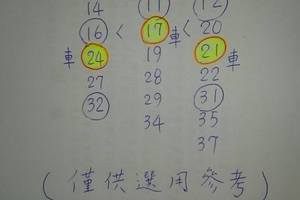 14 11 12
16 < 17 車 < 20
車 24 19 21 車
27 28 22
32 29 31
34 35
37
(僅供選用參考)